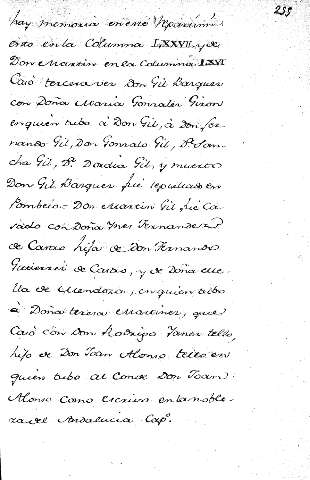 255
hay memoria en este Repartimi
ento en la Columna LXXVII, y de
Don Martin en la Columna LXVI
Casó tercera vez Don Gil Basquez
con Doña Maria Gonzalez Giron
en quien tubo à Don Gil, à Don Fer-
nando Gil, Don Gonzalo Gil, Dª. San-
cha Gil, Dª. Dordia Gil, y muerto
Don Gil Basquez fué sepultado en
Pombeiro = Don Martin Gil fué Ca-
sado con Doña Ynes Fernandez
de Castro hija de Don Fernando
Gutierrez de Castro, y de Doña Mi-
lia de Mendoza, en quien tubo
à Doña teresa Martinez, que
Casó con Don Rodrigo Yanez tello,
hijo de Don Joan Alonso tello en
quien tubo al Conde Don Joan
Alonso como escrivo en la noble-
za del Andalucia Capº.